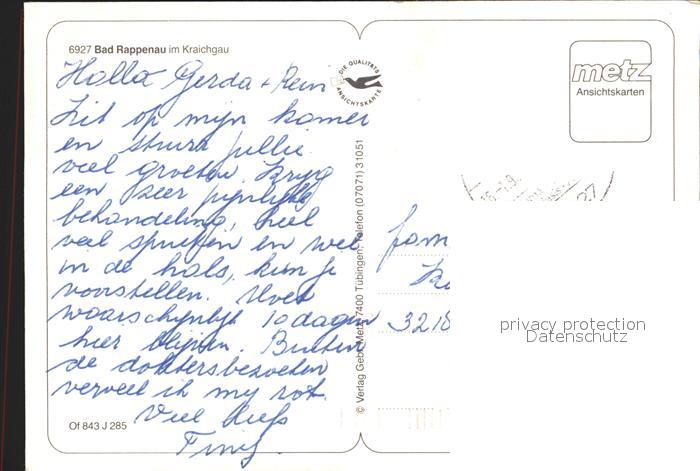 6927 Bad Rappenau im Kraichgau
Hallo Gerda + Rein
Zit op mijn kamer
en stuur jullie
veel groeten. Kryg
een zeer pijnlijke
behandeling, heel
veel spuiten en wel
in de hals, kun je
voorstellen. Moet
waarschijnlijk 10 dagen
hier blijven. Buiten
de doktersbezoeken
verveel ik my rot.
Veel liefs
Of 843 J 285
DIE QUALITÄTS
ANSICHTSKARTE
© Verlag Gebr. Metz, 7400 Tübingen, Telefon (07071) 31051
metz
Ansichtskarten
27
fam
3218
privacy protection
Datenschutz